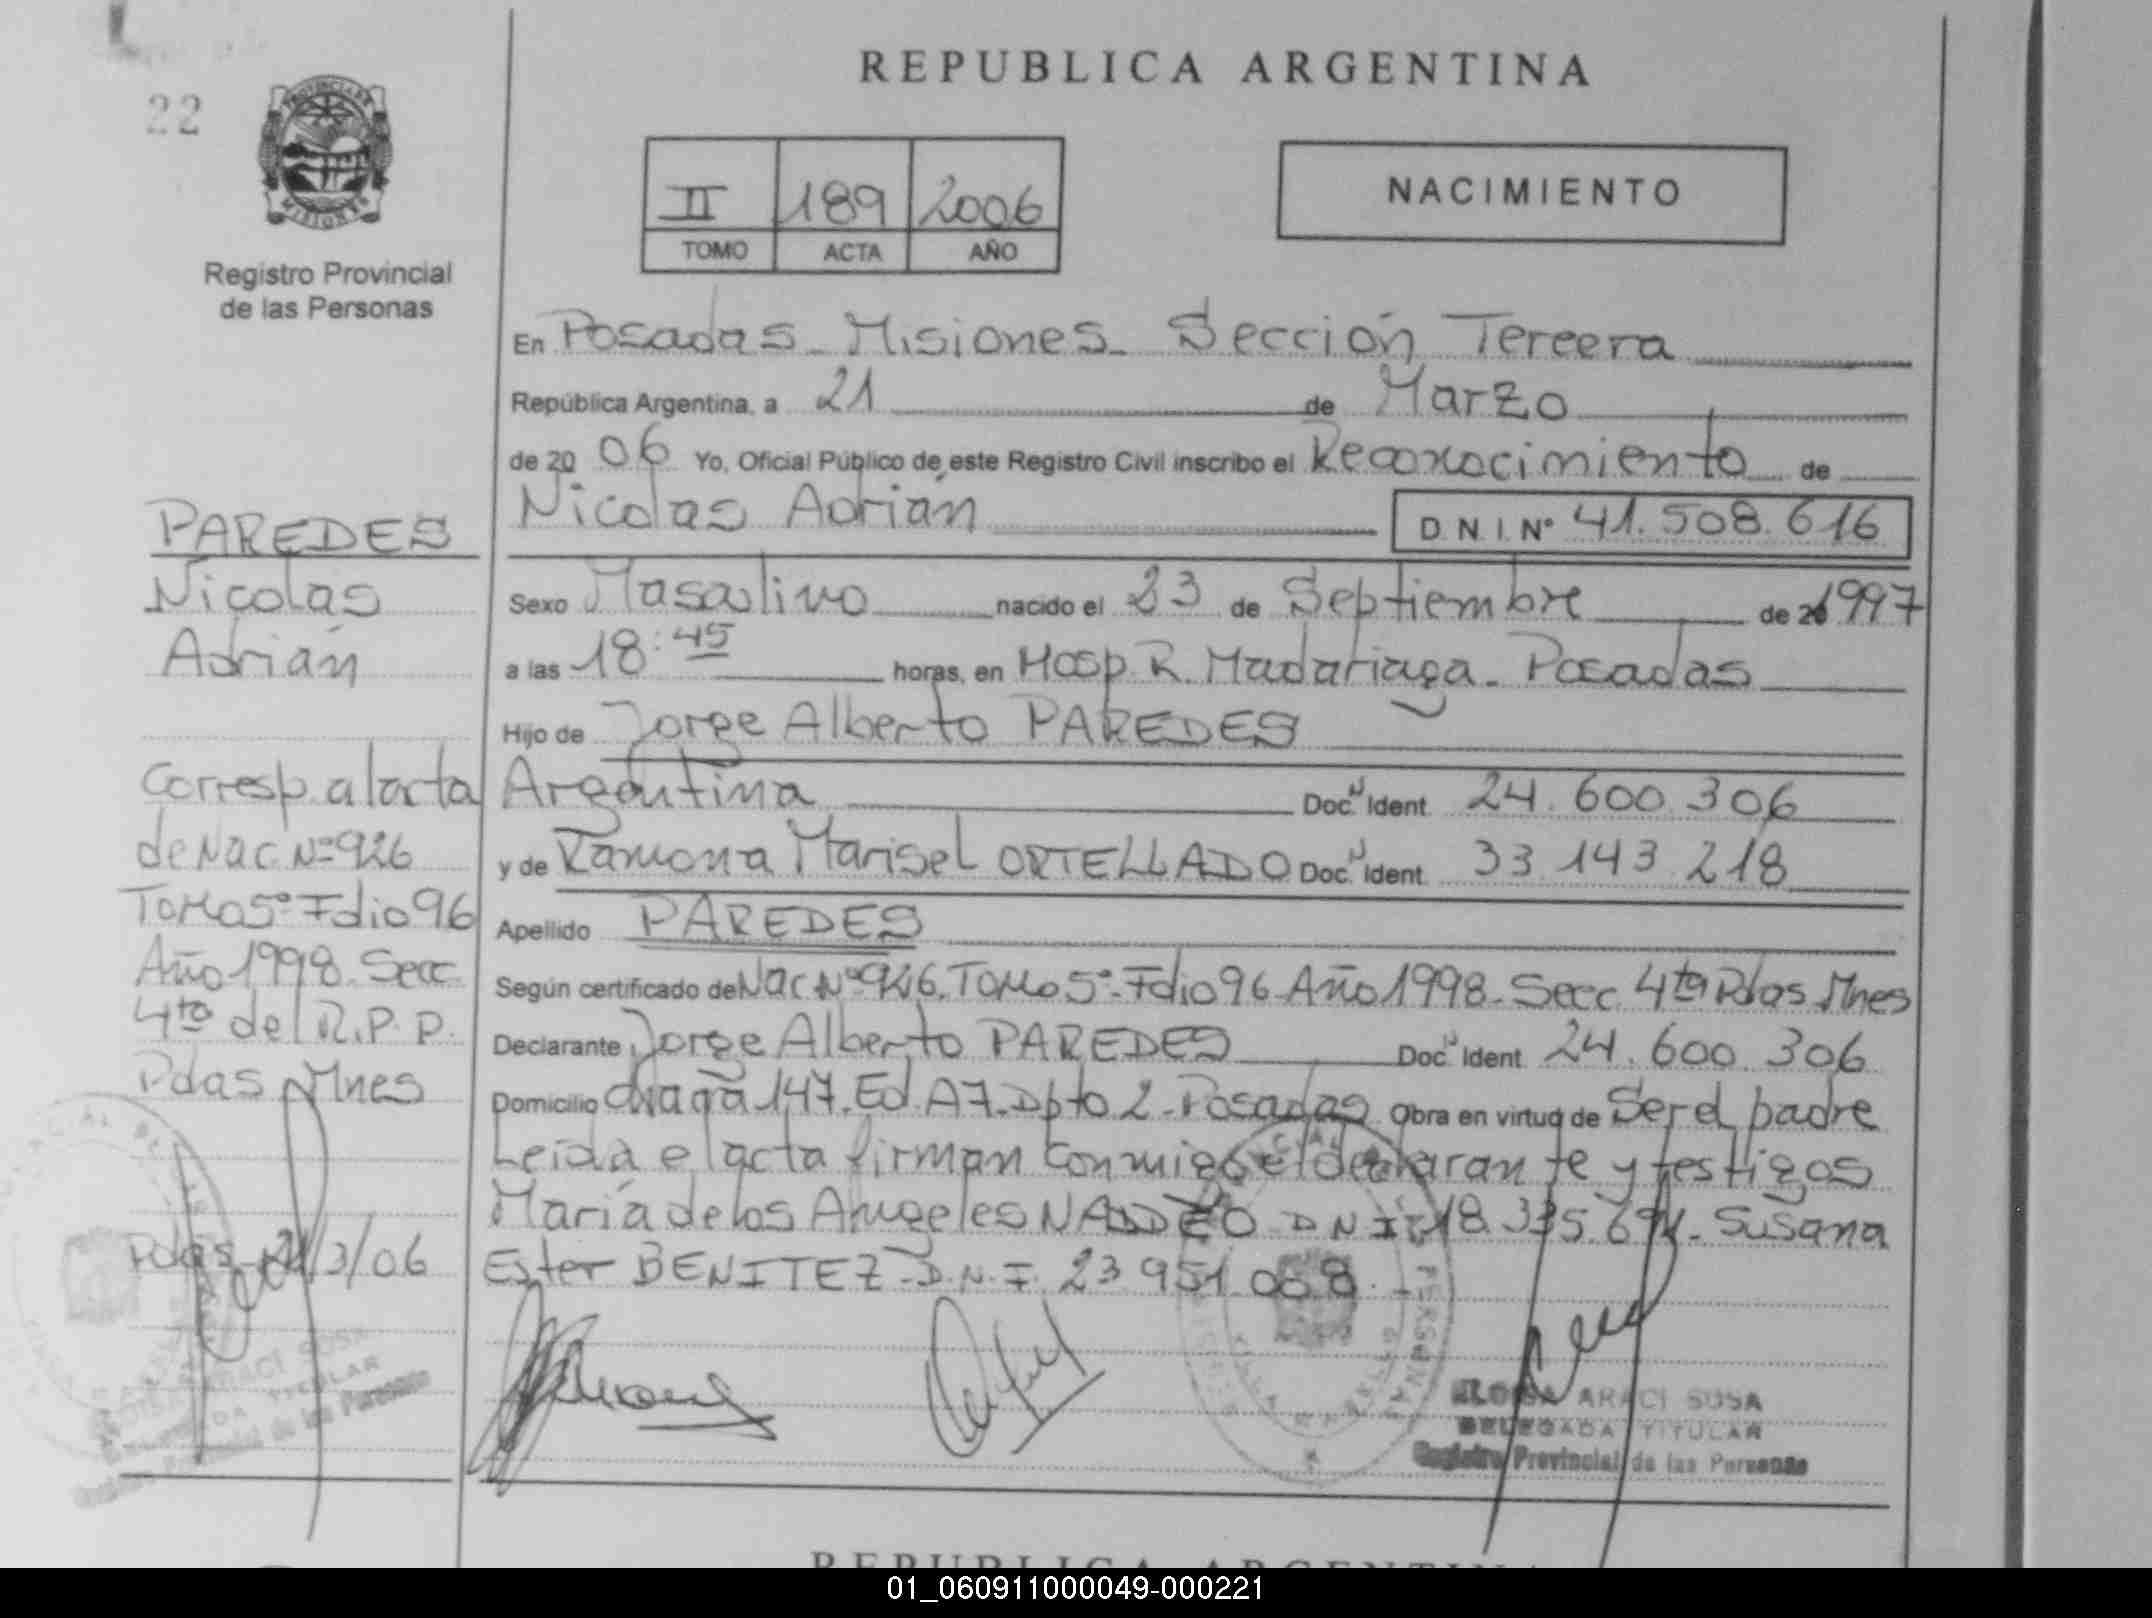 REPUBLICA ARGENTINA
22
PROVINCIA DE
MISIONES
Registro Provincial
de las Personas
II 189 2006
TOMO ACTA AÑO
NACIMIENTO
En Posadas - Misiones - Sección Tercera
República Argentina, a 21 de Marzo
de 20 06 Yo, Oficial Público de este Registro Civil inscribo el Reconocimiento de
Nicolas Adrián D.N.I. Nº 41.508.616
Sexo Masculino nacido el 23 de Septiembre de 1997
a las 18:45 horas, en Hosp. R. Madariaga - Posadas
Hijo de Jorge Alberto PAREDES
Argentina Doc. Ident. 24.600.306
y de Ramona Marisel ORTELLADO Doc. Ident. 33 143 218
Apellido PAREDES
Según certificado de Nac Nº 926. Tomo 5º - Folio 96 Año 1998 - Secc. 4ta Pdas Mnes
Declarante Jorge Alberto PAREDES Doc. Ident. 24.600.306
Domicilio 147. Ed. A7. Dpto 2 - Posadas Obra en virtud de Ser el padre
Leida el acta firman conmigo el declarante y testigos
María de los Angeles NADDEO DNI 18.335.694 - Susana
Ester BENITEZ - D.N.I. 23 951 008. -
ELOISA ARACI SOSA
DELEGADA TITULAR
Registro Provincial de las Personas
PAREDES
Nicolas
Adrián
Corresp. al acta
de Nac. Nº 926
Tomo 5º Folio 96
Año 1998. Secc.
4ta del R.P.P.
Pdas Mnes
Pdas - 21/3/06
ELOISA ARACI SOSA
DELEGADA TITULAR
Registro Provincial de las Personas
REPUBLICA ARGENTINA
01_060911000049-000221